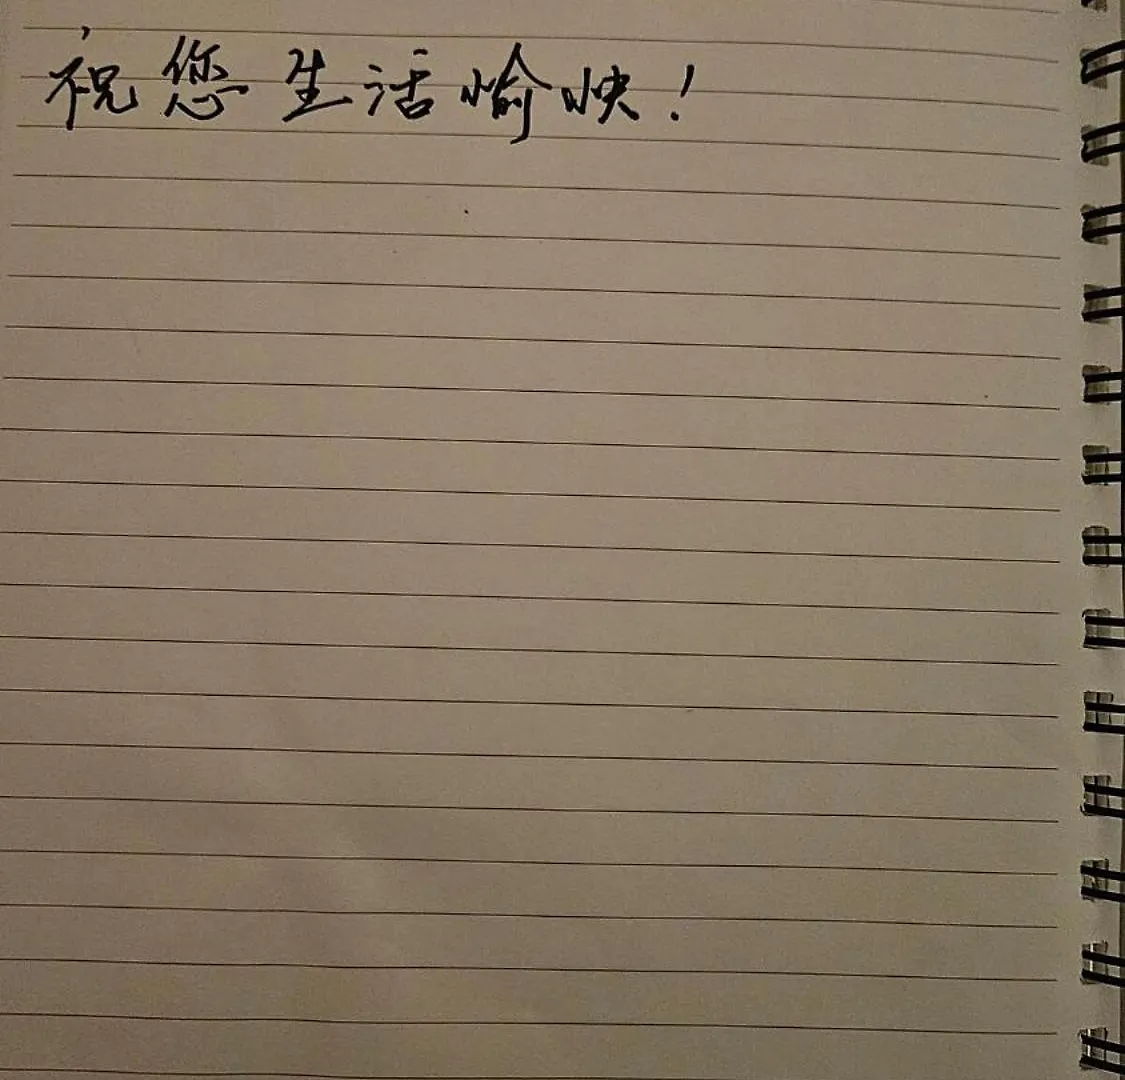 祝您生活愉快！